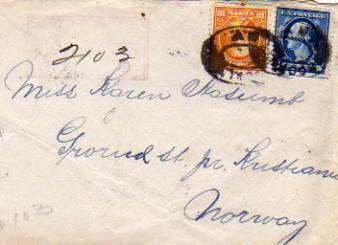 U.S. POSTAGE
2103
Miss Karen
Grorud st. pr. Kristiania
Norway